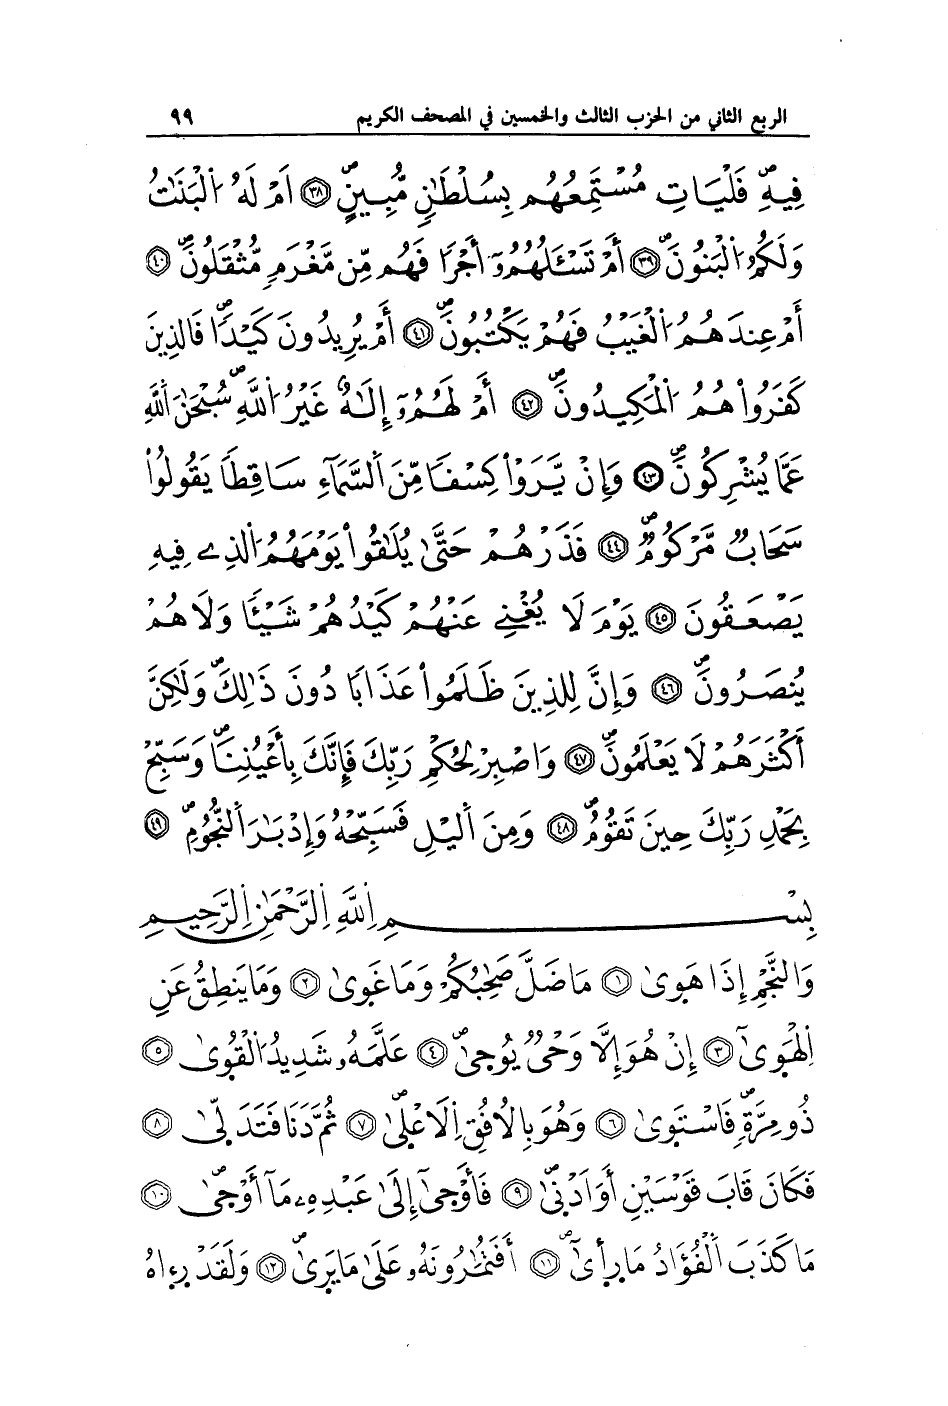 الربع الثاني من الحزب الثالث والخمسين في المصحف الكريم ٩٩
فِيهِ فَلْيَاتِ مُسْتَمِعُهُم بِسُلْطَٰنٖ مُّبِينٍ ٣٨ اَمْ لَهُ اُ۬لْبَنَٰتُ
وَلَكُمُ اُ۬لْبَنُونَ ٣٩ أَمْ تَسْـَٔلُهُمُۥٓ أَجْراٗ فَهُم مِّن مَّغْرَمٖ مُّثْقَلُونَ ٤٠
أَمْ عِندَهُمُ اُ۬لْغَيْبُ فَهُمْ يَكْتُبُونَ ٤١ أَمْ يُرِيدُونَ كَيْداٗ فَالذِينَ
كَفَرُواْ هُمُ اُ۬لْمَكِيدُونَ ٤٢ أَمْ لَهُمُۥٓ إِلَٰهٌ غَيْرُ اُ۬للَّهِ سُبْحَٰنَ اَ۬للَّهِ
عَمَّا يُشْرِكُونَ ٤٣ وَإِنْ يَّرَوْاْ كِسْفاٗ مِّنَ اَ۬لسَّمَآءِ سَاقِطاٗ يَقُولُواْ
سَحَابٞ مَّرْكُومٞ ٤٤ فَذَرْهُمْ حَتَّىٰ يُلَٰقُواْ يَوْمَهُمُ اُ۬لذِے فِيهِ
يَصْعَقُونَ ٤٥ يَوْمَ لَا يُغْنِے عَنْهُمْ كَيْدُهُمْ شَيْـٔاٗ وَلَا هُمْ
يُنصَرُونَ ٤٦ وَإِنَّ لِلذِينَ ظَلَمُواْ عَذَاباٗ دُونَ ذَٰلِكَ وَلَٰكِنَّ
أَكْثَرَهُمْ لَا يَعْلَمُونَ ٤٧ وَاصْبِرْ لِحُكْمِ رَبِّكَ فَإِنَّكَ بِأَعْيُنِنَا وَسَبِّحْ
بِحَمْدِ رَبِّكَ حِينَ تَقُومُ ٤٨ وَمِنَ اَ۬ليْلِ فَسَبِّحْهُ وَإِدْبَٰرَ اَ۬لنُّجُومِ ٤٩
بِسْمِ اِ۬للَّهِ اِ۬لرَّحْمَٰنِ اِ۬لرَّحِيمِ
وَالنَّجْمِ إِذَا هَوَىٰ ١ مَا ضَلَّ صَٰحِبُكُمْ وَمَا غَوَىٰ ٢ وَمَا يَنطِقُ عَنِ
اِ۬لْهَوَىٰٓ ٣ إِنْ هُوَ إِلَّا وَحْيٞ يُوحَىٰ ٤ عَلَّمَهُۥ شَدِيدُ اُ۬لْقُوَىٰ ٥
ذُو مِرَّةٖ فَاسْتَوَىٰ ٦ وَهُوَ بِالُافُقِ اِ۬لَاعْلَىٰ ٧ ثُمَّ دَنَا فَتَدَلَّىٰ ٨
فَكَانَ قَابَ قَوْسَيْنِ أَوَ اَدْنَىٰ ٩ فَأَوْحَىٰٓ إِلَىٰ عَبْدِهِۦ مَآ أَوْحَىٰ ١٠
مَا كَذَبَ اَ۬لْفُؤَادُ مَا رَأَىٰٓ ١١ أَفَتُمَٰرُونَهُۥ عَلَىٰ مَا يَرَىٰ ١٢ وَلَقَدْ رِءَاهُ